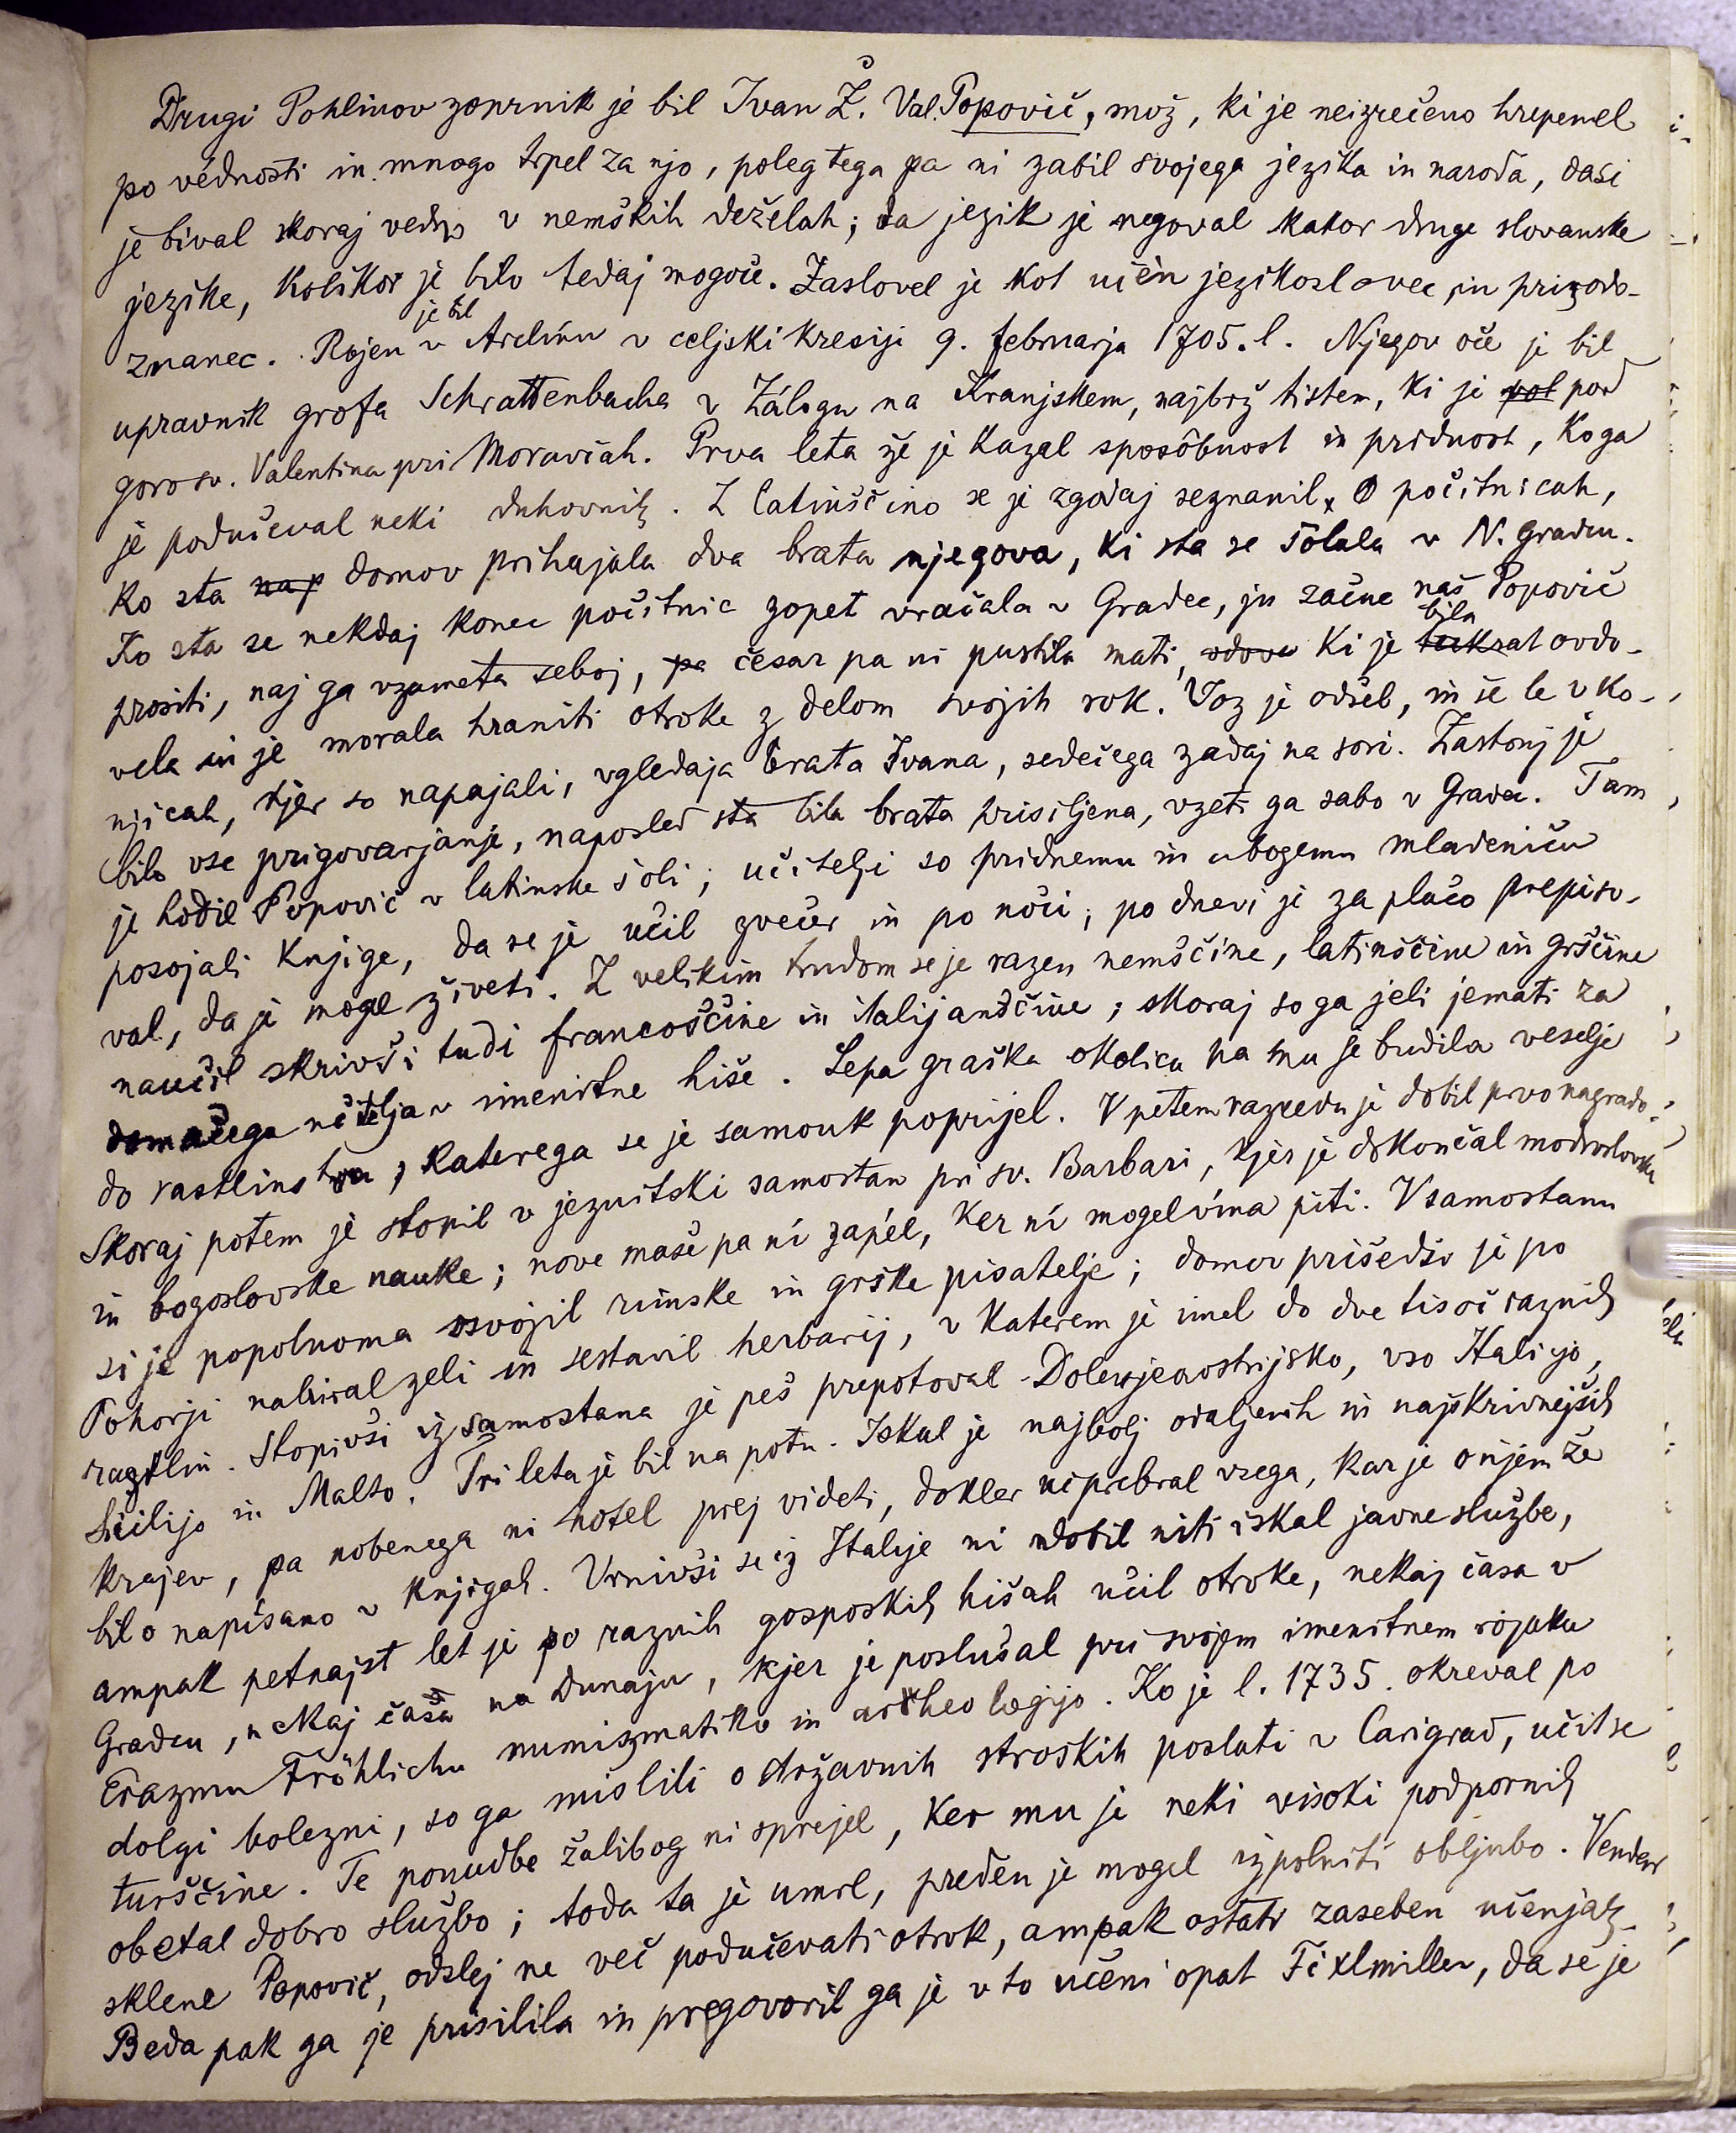 Drugi Pohlinov zoprnik je bil Ivan Ž. Val. Popovič, mož, ki je neizrečeno hrepenel
po vednosti in mnogo trpel za njo, poleg tega pa ni zabil svojega jezika in naroda, dasi
je bival skoraj vedno v nemških deželah; ta jezik je negoval kakor druge slovanske
jezike, kolikor je bilo tedaj mogoče. Zaslovel je kot učen jezikoslovec in prirodo-
znanec. Rojen je bil v Arclinu v celjski kresiji 9. februarja 1705. l. Njegov oče je bil
upravnik grofa Schrattenbacha v Zálogu na Kranjskem, najbrž tistem, ki je pol pod
goro sv. Valentina pri Moravčah. Prva leta že je kazal sposôbnost in pridnost, ko ga
je podučeval neki duhovnik. Z latinščino se je zgodaj seznanil. O počitnicah,
ko sta nap domov prihajala dva brata njegova, ki sta se šolala v N. Gradcu.
Ko sta se nekdaj konec počitnic zopet vračala v Gradec, ju začne naš Popovič
prositi, naj ga vzameta seboj, pa česar pa ni pustila mati, vdova ki je bila takrat ovdo-
vela in je morala hraniti otroke z delom svojih rok. Voz je odšel, in še le v Ko-
njicah, kjer so napajali, vgledaja brata Ivana, sedečega zadaj na sori. Zastonj je
bilo vse prigovarjanje, naposled sta bila brata prisiljena, vzeti ga sabo v Gradec. Tam
je hodil Popovič v latinske šoli; učitelji so pridnemu in ubogemu mladeniču
posojali knjige, da se je učil zvečer in po noči; po dnevi je za plačo prepiso-
val, da je mogel živeti. Z velikim trudom se je razen nemščine, latinščine in grščine
naučil skrivši tudi francoščine in italijanščine; skoraj so ga jeli jemati za
domačega učitelja v imenitne hiše. Lepa graška okolica pa mu je budila veselje
do rastlinstva, katerega se je samouk poprijel. V petem razredu je dobil prvo nagrado.
Skoraj potem je stopil v jezuitski samostan pri sv. Barbari, kjer je dokončal modroslovske
in bogoslovske nauke; nove maše pa ni zapél, ker ni mogel vina piti. V samostanu
si je popolnoma osvojil rimske in grške pisatelje; domov prišedši je po
Pohorji nabiral zeli in sestavil herbarij, v katerem je imel do dve tisoč raznih
rastlin. Stopivši iz samostana je peš prepotoval Dolenjeavstrijsko, vso Italijo,
Sicilijo in Malto. Tri leta je bil na potu. Iskal je najbolj odaljenih in najskrivnejših
krajev, pa nobenega ni hotel prej videti, dokler ni prebral vsega, kar je o njem že
bilo napisano v knjigah. Vrnivši se iz Italije ni dobil niti iskal javne službe,
ampak petnajst let je po raznih gosposkih hišah učil otroke, nekaj časa v
Gradcu, nekaj časa na Dunaju, kjer je poslušal pri svojem imenitnem rojaku
Erazmu Fröhlichu numizmatiko in arheologijo. Ko je l. 1735. okreval po
dolgi bolezni, so ga mislili o državnih stroških poslati v Carigrad, učit se
turščine. Te ponudbe žalibog ni sprejel, ker mu je neki visoki podpornik
obetal dobro službo; toda ta je umrl, preden je mogel izpolniti obljubo. Vendar
sklene Popovič, odslej ne več podučevati otrok, ampak ostati zaseben učenjak.
Beda pak ga je prisilila in pregovoril ga je v to učeni opat Fixlmiller, da se je